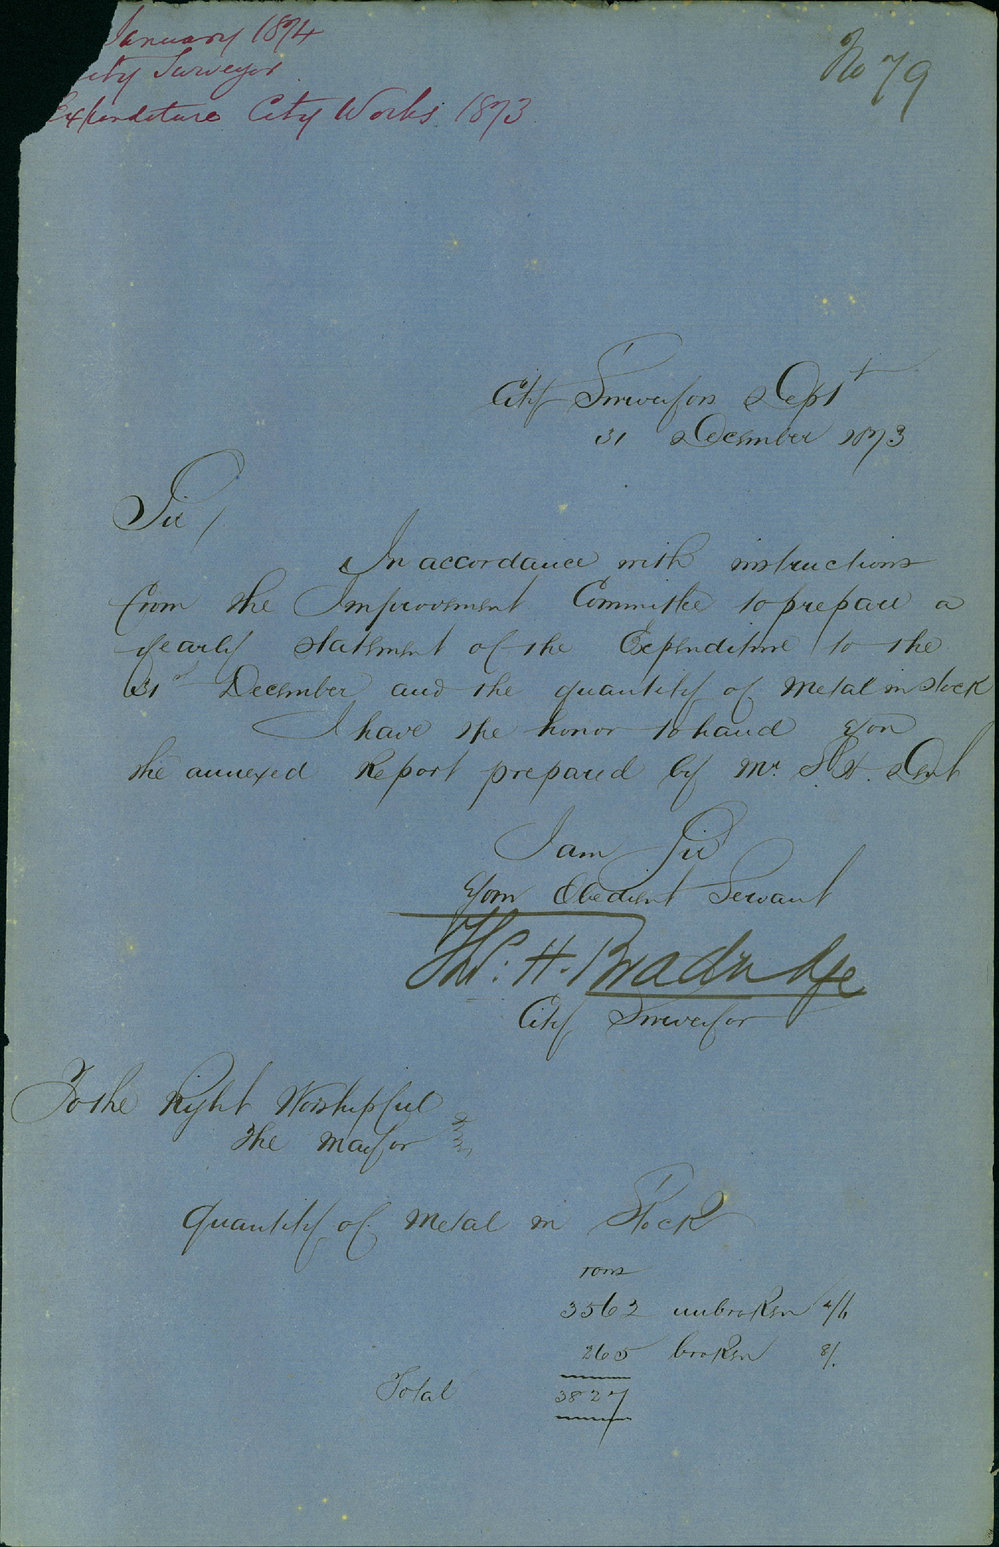 January 1874
City Surveyor
Expenditure City Works 1873
No 79
City Surveyors Dept
31 December 1873
Sir/
In accordance with instructions
from the Improvement Committee to prepare a
yearly statement of the Expenditure to the
31st December and the quantity of Metal in stock
I have the honor to hand you
the annexed Report prepared by Mr. Dent
I am Sir
Your Obedient Servant
Thos. H. Bradridge
City Surveyor
To the Right Worshipful
The Mayor
Quantity of Metal in Stock
Tons
3562 unbroken 4/6
265 broken 8/.
Total 3827